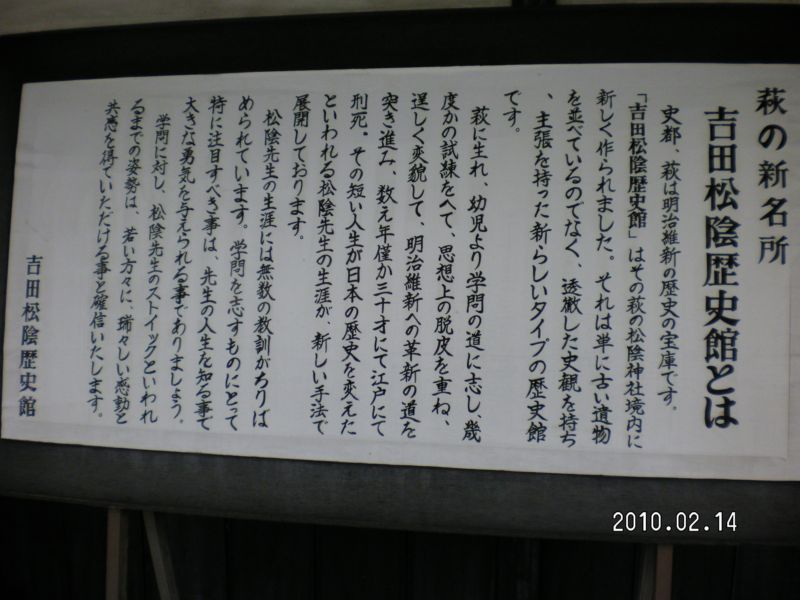 萩の新名所
吉田松陰歴史館とは
史都、萩は明治維新の歴史の宝庫です。
「吉田松陰歴史館」はその萩の松陰神社境内に
新しく作られました。それは単に古い遺物
を並べているのでなく、透徹した史観を持ち
、主張を持った新らしいタイプの歴史館
です。
萩に生れ、幼児より学問の道に志し、幾
度かの試練をへて、思想上の脱皮を重ね、
逞しく変貌して、明治維新への革新の道を
突き進み、数え年僅か三十才にて江戸にて
刑死。その短い人生が日本の歴史を変えた
といわれる松陰先生の生涯が、新しい手法で
展開しております。
松陰先生の生涯には無数の教訓がちりば
められています。学問を志すものにとって
特に注目すべき事は、先生の人生を知る事で
大きな勇気を与えられる事でありましょう。
学問に対し、松陰先生のストイックといわれ
るまでの姿勢は、若い方々に、瑞々しい感動と
共感を得ていただける事と確信いたします。
吉田松陰歴史館
2010.02.14